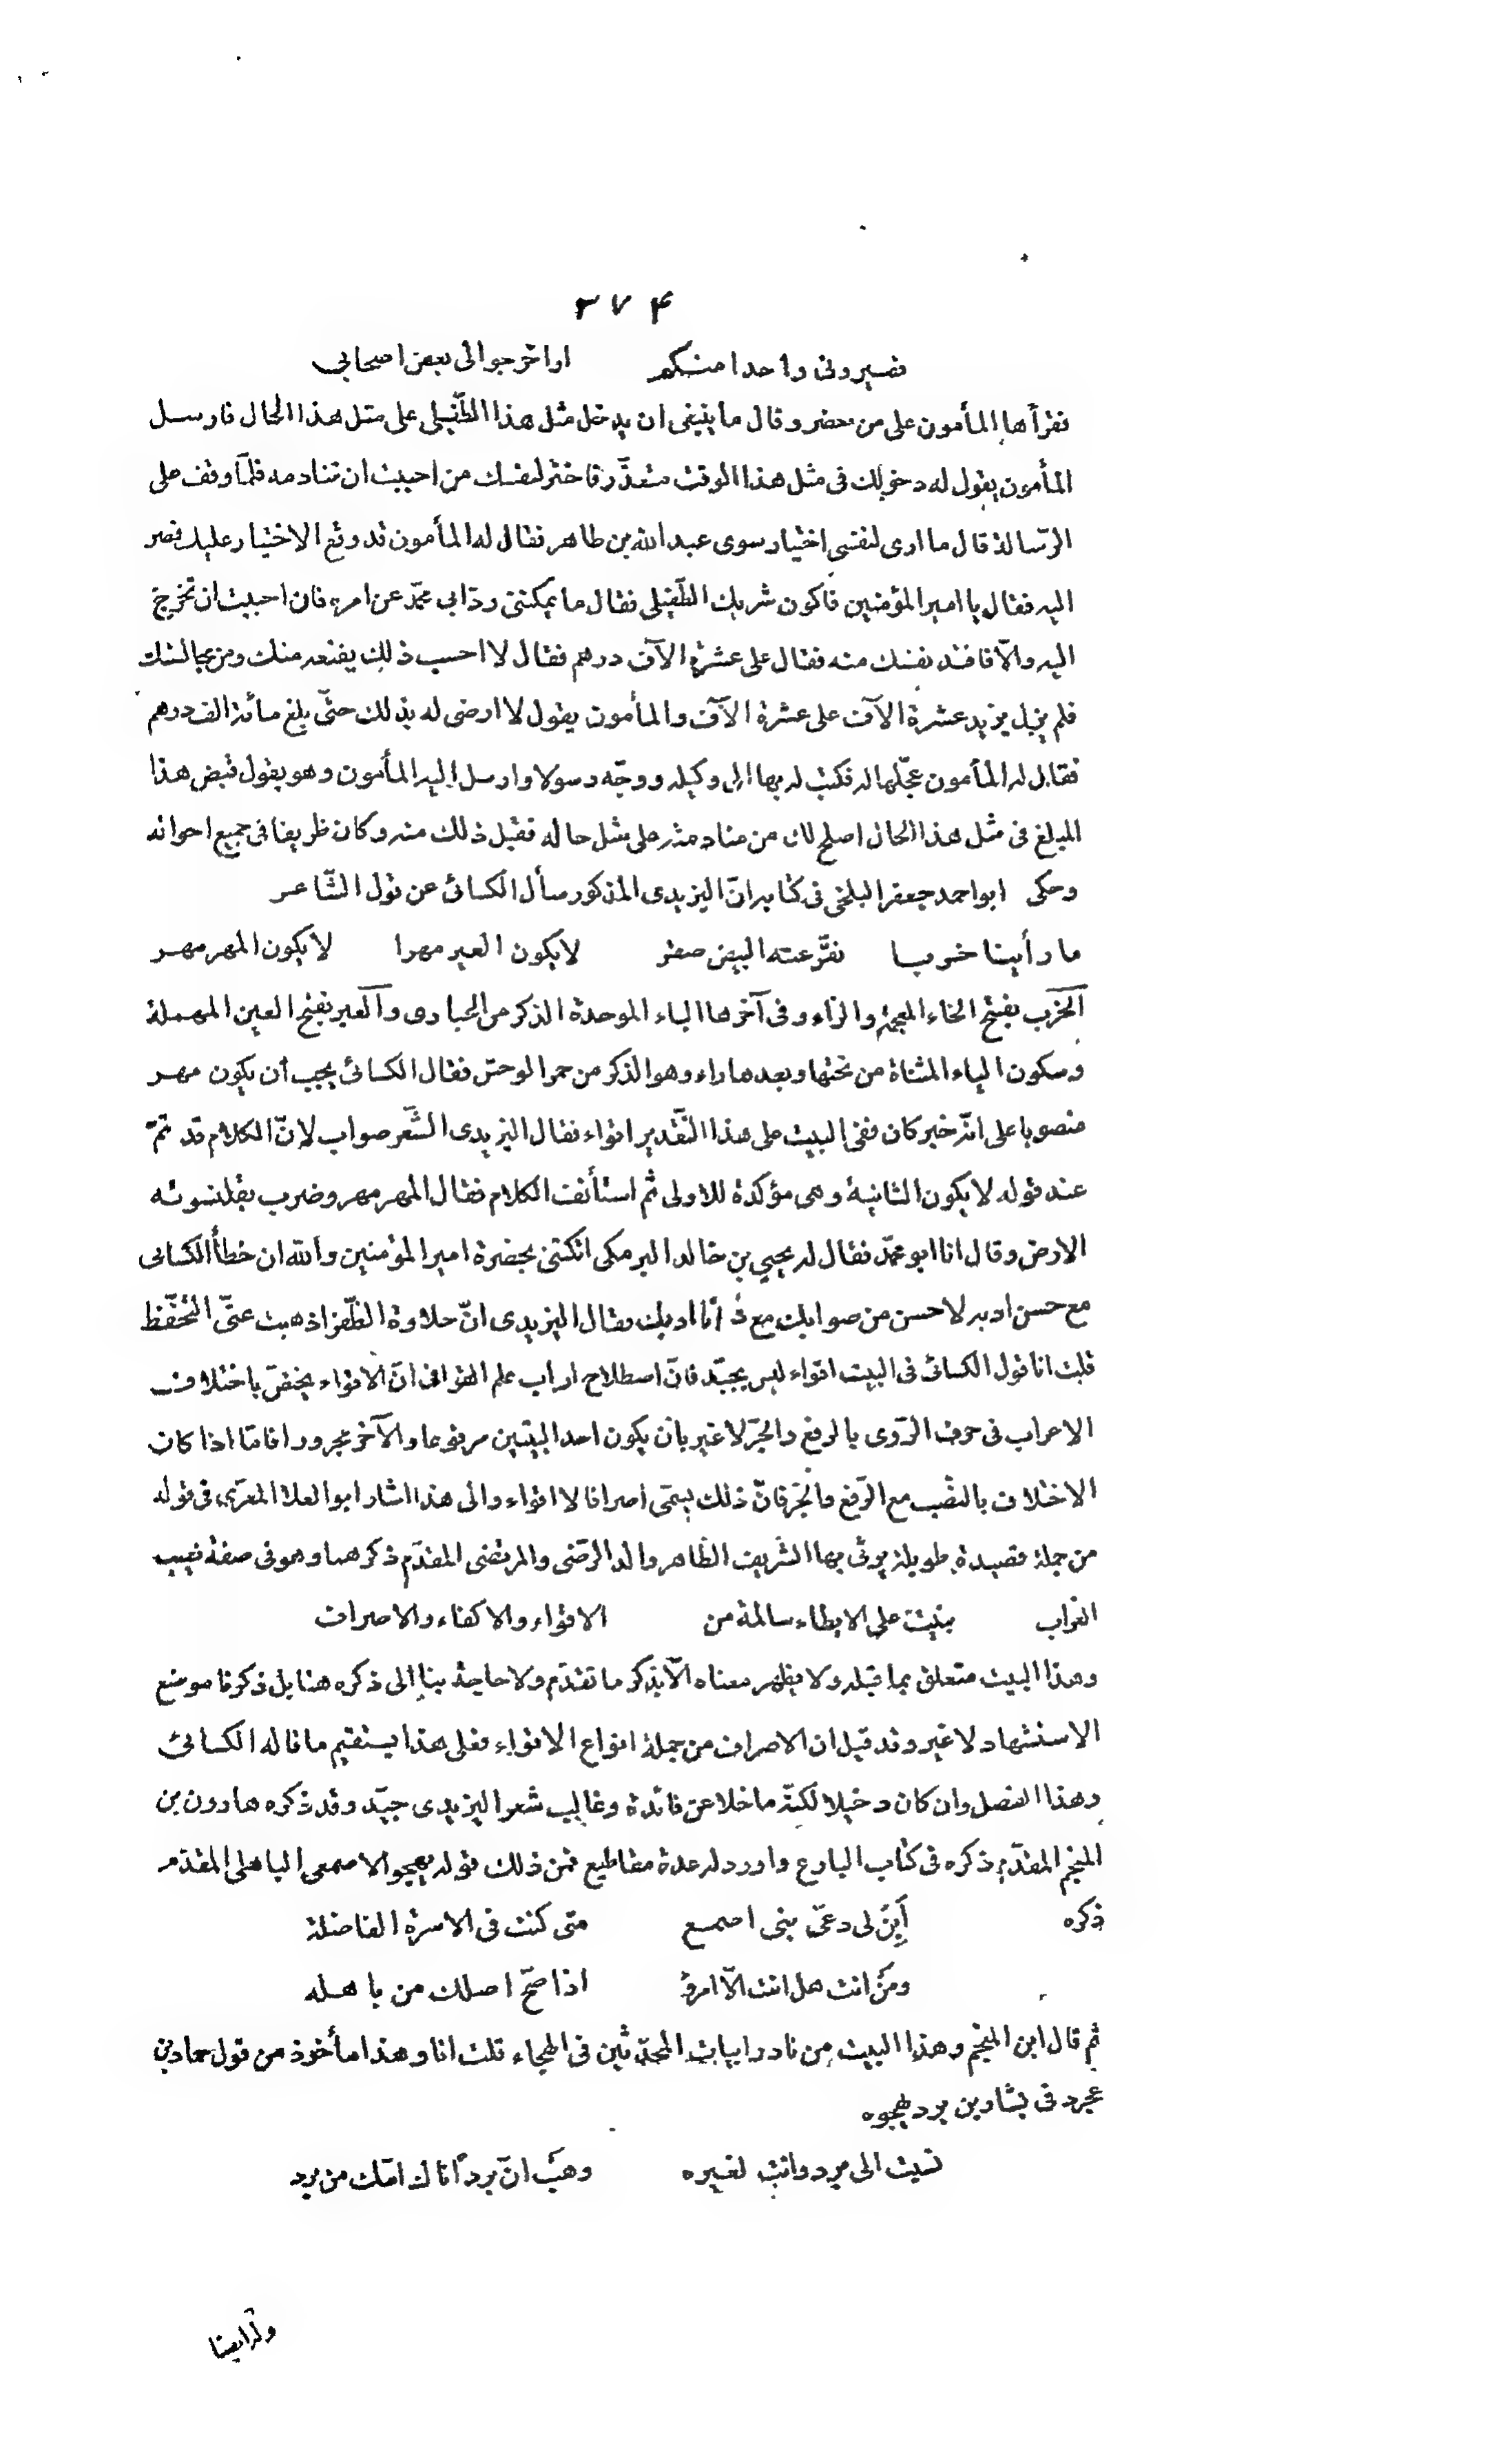 ٣٧۴
فصيرونى واحدا منكم اواخرجوالى بعض اصحابى
فقرأها المأمون على من حضر وقال ما ينبغى ان يدخل مثل هذا الطّفيلى على مثل هذا الحال فارسل
المأمون يقول له دخولك فى مثل هذا الوقت متعذّر فاختر لنفسك من احببت ان تنادمه فلمّا وقف على
الرّسالة قال ما ارى لنفسى اختيار سوى عبد الله بن طاهر فقال له المأمون قد وقع الاختيار عليك فصر
اليه فقال يا امير المؤمنين فاكون شريك الطّفيلى فقال ما يمكننى ردّ ابى محمّد عن امره فان احببت ان تخرج
اليه والّا فافتد نفسك منه فقال على عشرة الآف درهم فقال لا احسب ذلك يقنعه منك ومن مجالستك
فلم يزل يزيد عشرة الآف على عشرة الآف والمأمون يقول لا ارضى له بذلك حتّى بلغ مائة الف درهم
فقال له المأمون عجّلها له فكتب له بها الى وكيله ووجّه رسولا وارسل اليه المأمون وهو يقول قبض هذا
المبلغ فى مثل هذا الحال اصلح لك من منادمته على مثل حاله فقبل ذلك منه وكان ظريفا فى جميع احواله
وحكى ابو احمد جعفر البلخى فى كتابه انّ اليزيدى المذكور سأل الكسائى عن قول الشّاعر
ما رأينا خربا نقّر عنه البيض صقر لا يكون العير مهرا لا يكون المهر مهر
الخرب بفتح الخاء المعجمة والرّاء وفى آخرها الباء الموحدة الذكر من الحبارى والعير بفتح العين المهملة
وسكون الياء المثناة من تحتها وبعدها راء وهو الذكر من حمر الوحش فقال الكسائى يجب أن يكون مهر
منصوبا على انّه خبر كان ففى البيت على هذا التّقدير اقواء فقال اليزيدى الشّعر صواب لانّ الكلام قد تمّ
عند قوله لا يكون الثانية وهى مؤكدة للاولى ثم استأنف الكلام فقال المهر مهر وضرب بقلنسوته
الارض وقال انا ابو محمّد فقال له يحيى بن خالد البرمكى اتكتنى بحضرة امير المؤمنين والله ان خطأ الكسائى
مع حسن ادبه لاحسن من صوابك مع ادبك فقال اليزيدى انّ حلاوة الظّفر اذهبت عنّى التّحفّظ
قلت انا قول الكسائى فى البيت اقواء ليس بجيّد فانّ اصطلاح ارباب علم القوافى انّ الاقواء يختصّ باختلاف
الاعراب فى حرف الرّوى بالرفع والجرّ لا غير بان يكون احد البيتين مرفوعا والآخر مجرورا فامّا اذا كان
الاختلاف بالنصب مع الرّفع والجرّ فانّ ذلك يسمّى اصرافا لا اقواء والى هذا اشار ابو العلاء المعرّى فى قوله
من جملة قصيدة طويلة يرثى بها الشّريف الطّاهر والد الرضى والمرتضى المقدّم ذكرهما وهو فى صفة نعيب
الغراب بنيت على الايطاء سالمة من الاقواء والاكفاء والاصراف
وهذا البيت متعلق بما قبله ولا يظهر معناه الّا بذكر ما تقدّم ولا حاجة بنا الى ذكره هنا بل ذكرنا موضع
الاستشهاد لا غير وقد قيل ان الاصراف من جملة انواع الاقواء فعلى هذا يستقيم ما قاله الكسائى
وهذا الفصل وان كان دخيلا لكنّه ما خلا عن فائدة وغالب شعر اليزيدى جيّد وقد ذكره هارون بن
المنجم المقدّم ذكره فى كتاب البارع واورد له عدة مقاطيع فمن ذلك قوله يهجو الاصمعى الباهلى المقدّم
ذكره أَبِنْ لى دعىّ بنى اصمع متى كنت فى الاسرة الفاضلة
ومَن انت هل انت الّا امرؤ اذا صحّ اصلك من باهله
ثم قال ابن المنجم وهذا البيت من نادر ابيات المحدّثين فى الهجاء قلت انا وهذا مأخوذ من قول حماد بن
عجرد فى بشار بن برد يهجوه
نسبت الى برد وانت لغيره وهب انّ بردًا ناك امّك من برد
وله ايضا